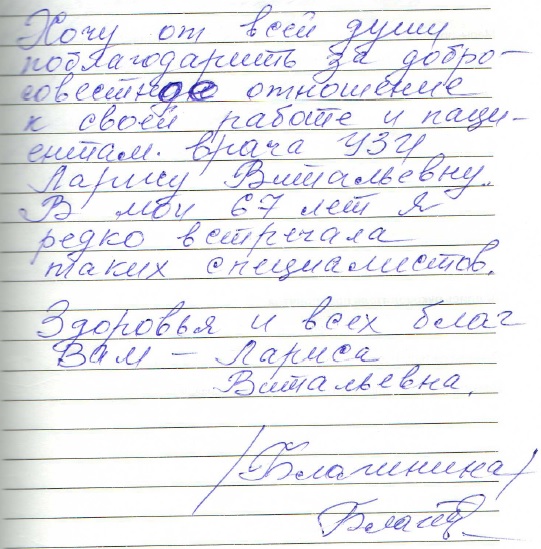 Хочу от всей душу
поблагодарить за добро-
совестное отношение
к своей работе и паци-
ентам. врача УЗИ
Ларису Витальевну.
В мои 67 лет я
редко встречала
таких специалистов.
Здоровья и всех благ
Вам – Лариса
Витальевна.
/Благинина/